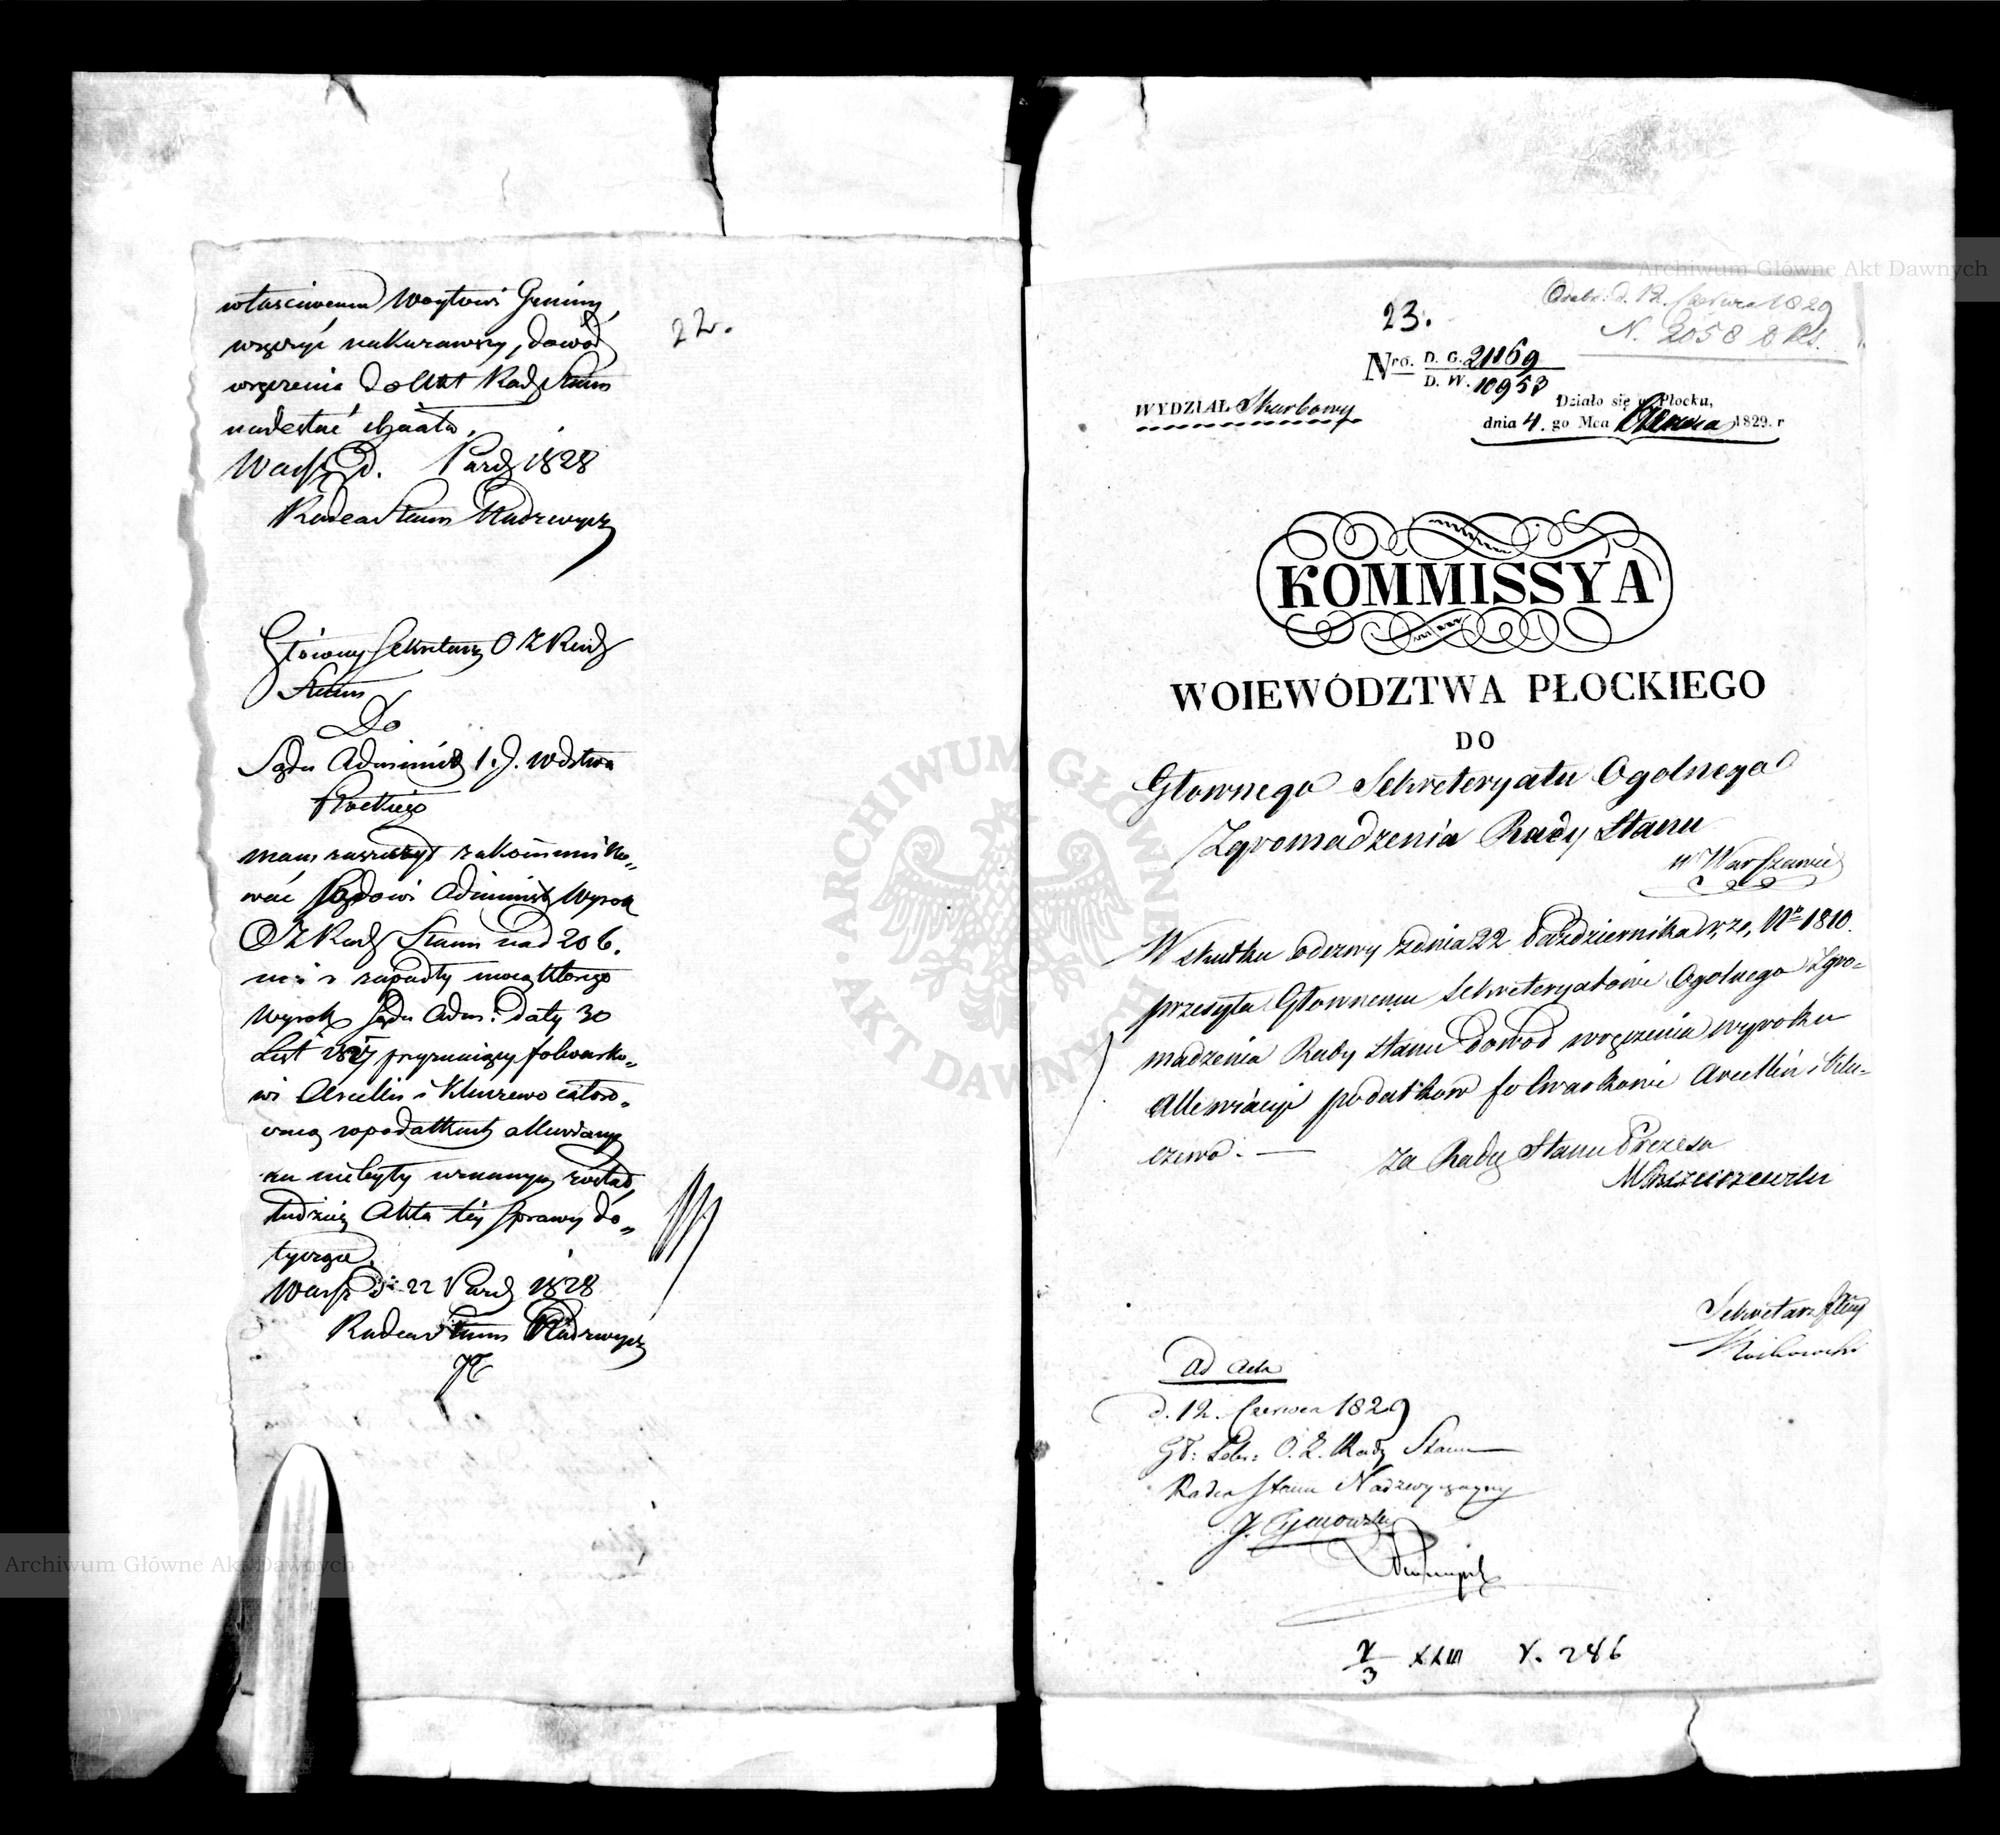 22.
właściwemu Woytowi Gminy
wręczyć nakazawszy, dowód
wręczenia do Akt Rady Stanu
nadesłać chciała.
Warsz. d. Paźdz 1828
Radca Stanu Nadzwycz
Główny Sekretarz O Z Rady
Stanu
Do
Sądu Administ 1. J. Wdztwa
Płockiego
mam zaszczyt zakommuniko„
wać Sądowi Administ Wyrok
O Z Rady Stanu nad 20 b.
m: i r zapadły mocą którego
Wyrok Sądu Adm: daty 30
List 1827 przyznaiący folwarko„
wi Arcelin i Kluczewo
w podatkach allewiacyą
za niebyły uznanym został,
tudzież Akta tey sprawy do„
tyczące.
Warsz d: 22 Paźdz 1828
Radca Stanu Nadzwycz
23.
Odebr: d. 12. Czerwca 1829
N. 2058
Nro. D. G. 21169
D. W. 10953
WYDZIAŁ Skarbowy
Działo się w Płocku,
dnia 4. go Mca Czerwca 1829. r
KOMMISSYA
WOIEWÓDZTWA PŁOCKIEGO
DO
Głownego Sekreteryatu Ogolnego
Zgromadzenia Rady Stanu
w Warszawie
W skutku odezwy z dnia 22 Października r, z, Nr 1810.
przesyła Głownemu Sekreteryatowi Ogolnego Zgro=
madzenia Rady Stanu dowod wręczenia wyroku
Allewiacyi podatkow folwarkowi Arcelin i Klu=
czewo. —
Za Radcę Stanu Prezesa
Sekretarz Jlny
Ad Acta
d. 12. Czerwca 1829
Gł: Sekr: O. Z. Rady Stanu
Radca Stanu Nadzwyczayny
J. Tymowski
2/3 XXIII V. 246
ARCHIWUM GŁÓWNE AKT DAWNYCH
Archiwum Główne Akt Dawnych
Archiwum Główne Akt Dawnych